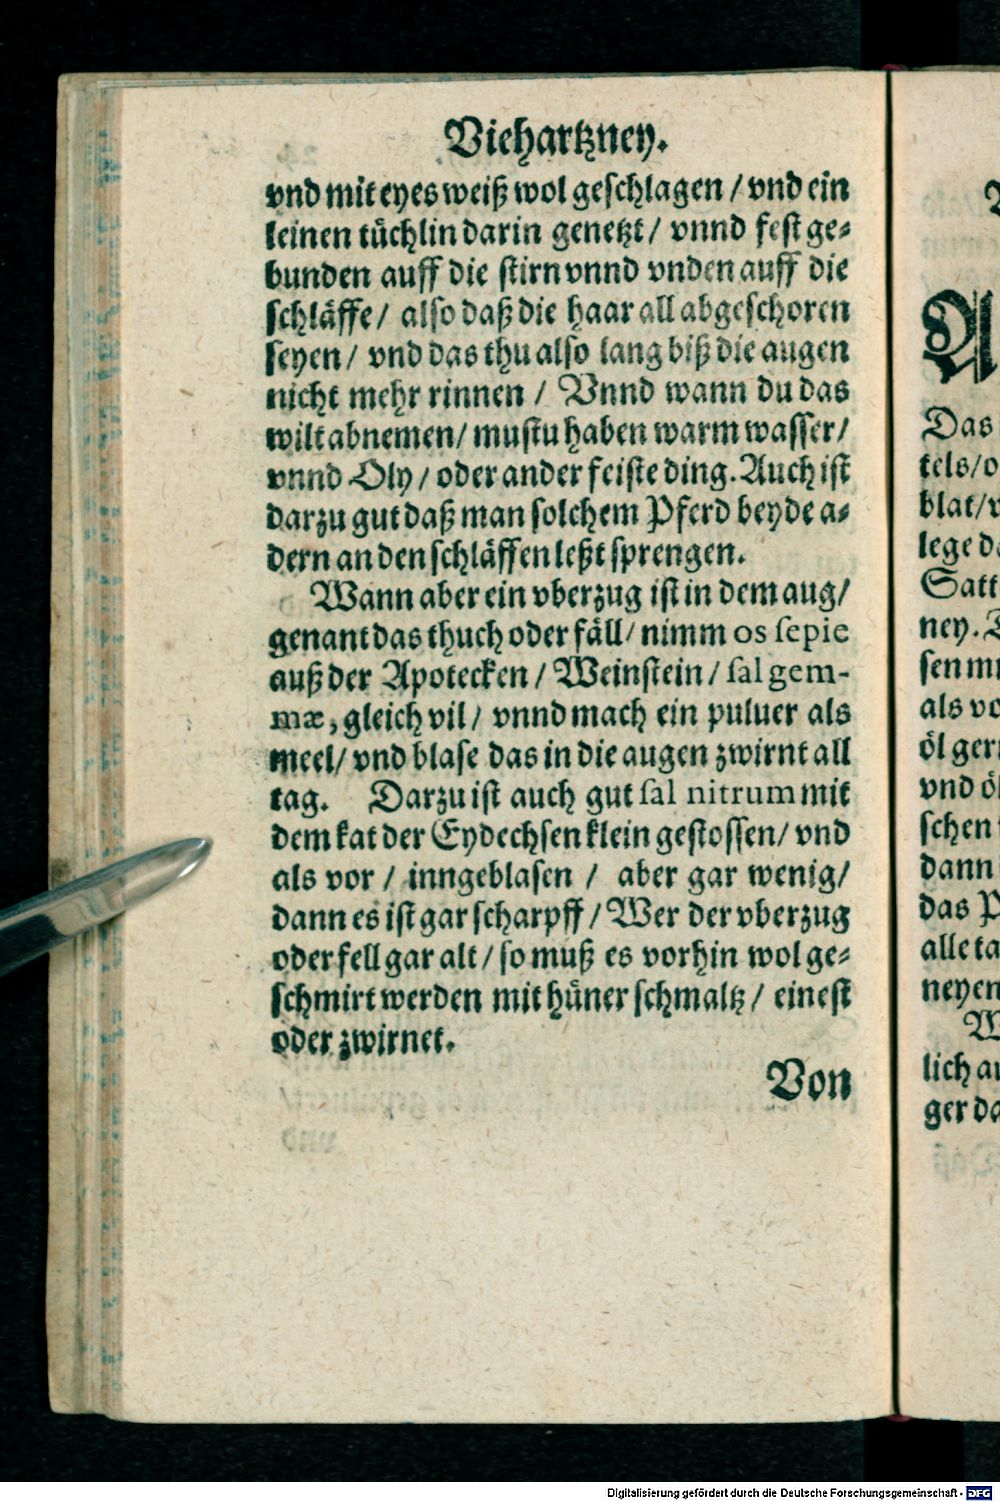 Viehartzney.
vnd mit eyes weiß wol geschlagen / vnd ein
leinen tüchlin darin genetzt / vnnd fest ge⸗
bunden auff die stirn vnnd vnden auff die
schläffe / also daß die haar all abgeschoren
seyen / vnd das thu also lang biß die augen
nicht mehr rinnen / Vnnd wann du das
wilt abnemen / mustu haben warm wasser /
vnnd Oly / oder ander feiste ding. Auch ist
darzu gut daß man solchem Pferd beyde a⸗
dern an den schläffen leßt sprengen.
Wann aber ein vberzug ist in dem aug /
genant das thuch oder fäll / nimm os sepie
auß der Apotecken / Weinstein / sal gem-
mæ, gleich vil / vnnd mach ein puluer als
meel / vnd blase das in die augen zwirnt all
tag. Darzu ist auch gut sal nitrum mit
dem kat der Eydechsen klein gestossen / vnd
als vor / inngeblasen / aber gar wenig /
dann es ist gar scharpff / Wer der vberzug
oder fell gar alt / so muß es vorhin wol ge⸗
schmirt werden mit hüner schmaltz / einest
oder zwirnet.
Von
Das
tels / o
blat / v
lege d
Satt
ney.
sen m
als vo
öl ger
vnd öl
schen
dann
das P
alle ta
neyen
W
lich a
ger da
Digitalisierung gefördert durch die Deutsche Forschungsgemeinschaft - DFG